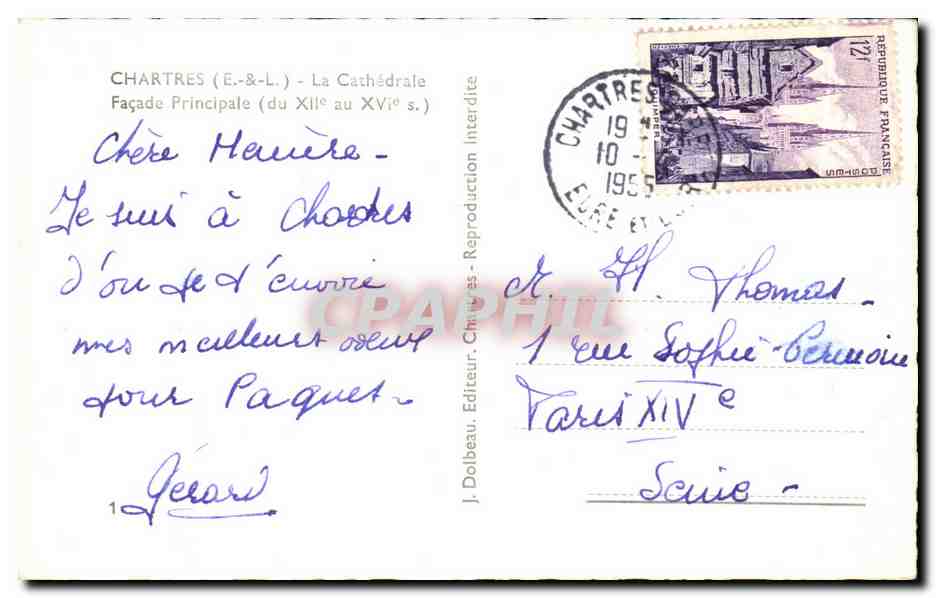 CHARTRES (E.-&-L.) - La Cathédrale
Façade Principale (du XIIe au XVIe s.)
Chère
Je suis à Chartres
d'où je t'envoie
mes meilleurs
pour Paques
Gérard
1
J. Dolbeau. Editeur. Chartres - Reproduction Interdite
CPAPHIL
CHARTRES
19
10 -
1955
EURE ET LOIR
12f
RÉPUBLIQUE FRANÇAISE
POSTES
QUIMPER
M. H. Thomas
1 rue Sophie-Germain
Paris XIVe
Seine -